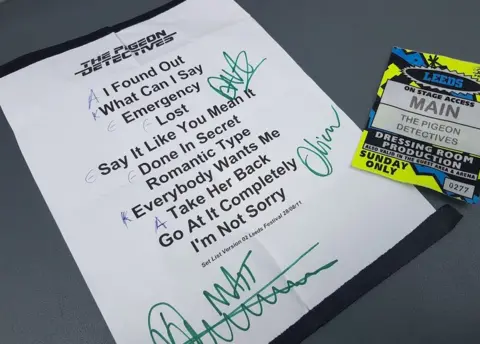 THE PIGEON
DETECTIVES
A I Found Out
K What Can I Say
E Emergency
E Lost
E Say It Like You Mean It
E Done In Secret
Romantic Type
K Everybody Wants Me
A Take Her Back
Go At It Completely
I'm Not Sorry
Set List Version 02 Leeds Festival 28/08/11
DAVE
Oliver
MATT
LEEDS
ON STAGE ACCESS
MAIN
THE PIGEON
DETECTIVES
DRESSING ROOM
PRODUCTION
ALSO VALID IN THE GUEST AREA & ARENA
SUNDAY
ONLY
0277